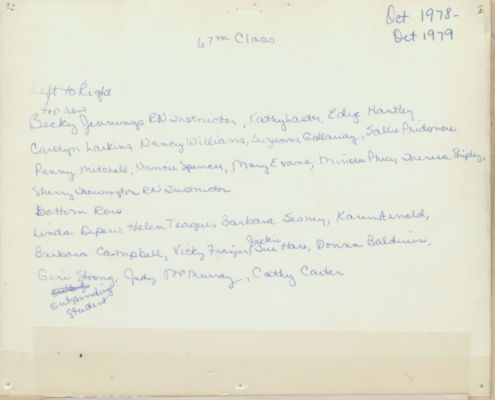 Oct 1978-
Oct 1979
67th Class
Left to Right
top row
Becky Jennings RN Instructor, Kathy Edye Hartley
Carolyn Larkins Nancy Williams, Suzanne Gallaway, Sallie Pridemore
Penny Mitchell, Nancie Spencer, Mary Evans, Minda Price, Theresa Shipley,
Sherry RN Instructor
Bottom Row
Linda Depew, Helen Teague, Barbara Karen Arnold,
Barbara Campbell, Vicky Frazier, Jackie Sue Hare, Donna Baldwin,
Geri Strong, Judy McMurray, Cathy Carter
outstanding
student